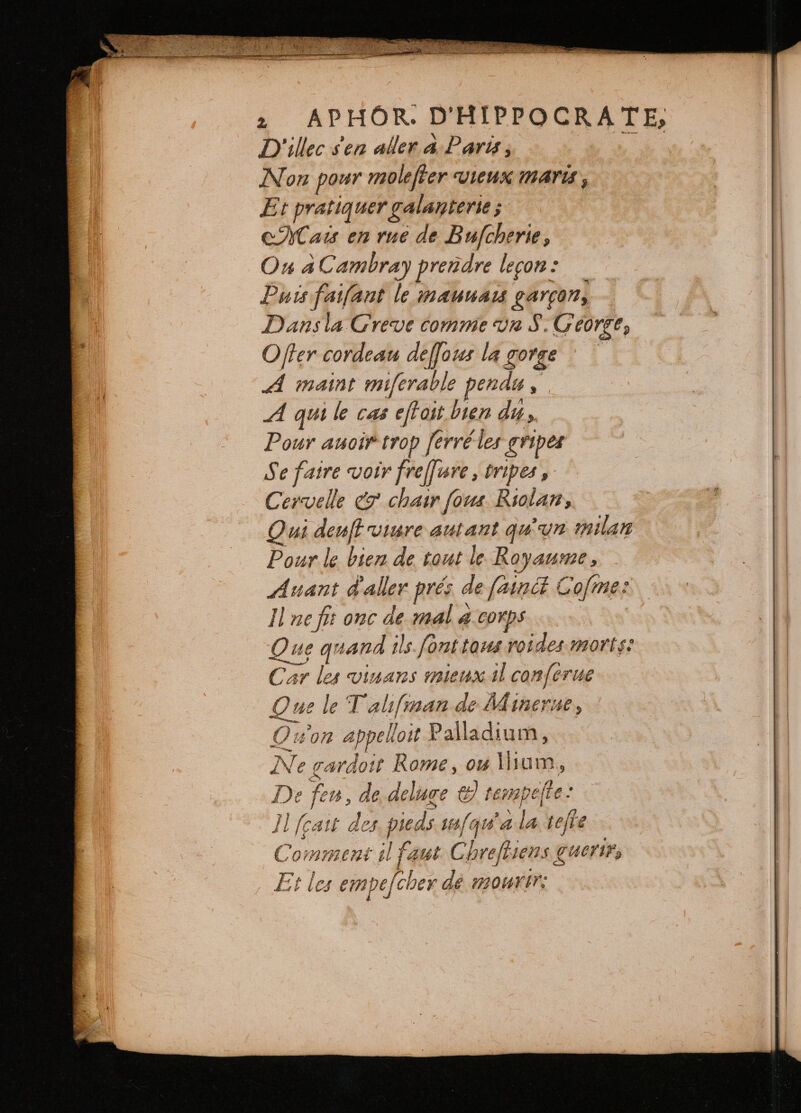 2 APHOR. D'HIPPOCRATE,
D'illec s'en aller à Paris,
Non pour molester vieux maris,
Et pratiquer galanterie;
Mais en ruë de Buscherie,
Ou à Cambray prendre leçon:
Puis faisant le mauuais garçon,
Dans la Greve comme vn S. George,
Oster cordeau dessous la gorge
A maint miserable pendu,
A qui le cas estoit bien dû,
Pour auoir trop serré les gripes
Se faire voir fressure, tripes,
Cervelle & chair sous Riolan,
Qui deust viure autant qu'vn milan
Pour le bien de tout le Royaume,
Auant d'aller prés de sainct Cosme:
Il ne fit onc de mal à corps
Que quand ils sont tous roides morts:
Car les viuans mieux il conserue
Que le Talisman de Minerue,
Qu'on appelloit Palladium,
Ne gardoit Rome, ou Ilium,
De feu, de deluge & tempeste:
Il sçait des pieds iusqu'à la teste
Comment il faut Chrestiens guerir,
Et les empescher de mourir: